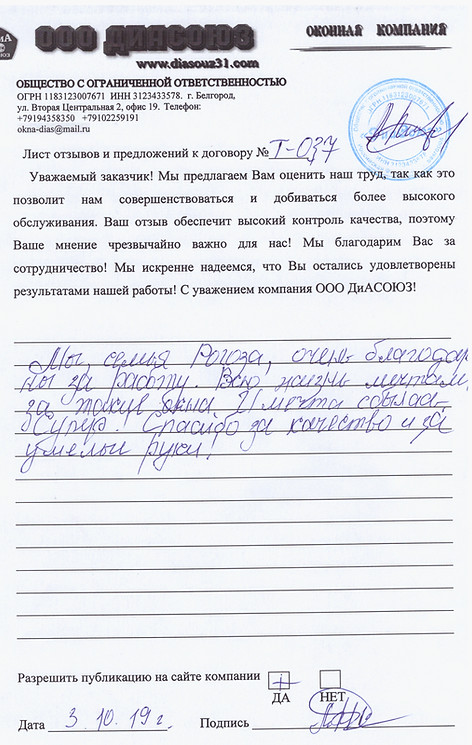 ООО ДИАСОЮЗ
ОКОННАЯ КОМПАНИЯ
www.diasouz31.com
ОБЩЕСТВО С ОГРАНИЧЕННОЙ ОТВЕТСТВЕННОСТЬЮ
ОГРН 1183123007671 ИНН 3123433578. г. Белгород,
ул. Вторая Центральная 2, офис 19. Телефон:
+79194358350 +79102259191
okna-dias@mail.ru
Лист отзывов и предложений к договору № Т-037
Уважаемый заказчик! Мы предлагаем Вам оценить наш труд, так как это
позволит нам совершенствоваться и добиваться более высокого
обслуживания. Ваш отзыв обеспечит высокий контроль качества, поэтому
Ваше мнение чрезвычайно важно для нас! Мы благодарим Вас за
сотрудничество! Мы искренне надеемся, что Вы остались удовлетворены
результатами нашей работы! С уважением компания ООО ДиАСОЮЗ!
Мы, семья Рогоза, очень благодар
ны за работу. Всю жизнь мечтали
за такие окна. И мечта сбылась
Супер! Спасибо за качество и за
умелые руки!
Разрешить публикацию на сайте компании
ДА НЕТ
Дата 3.10.19 г. Подпись